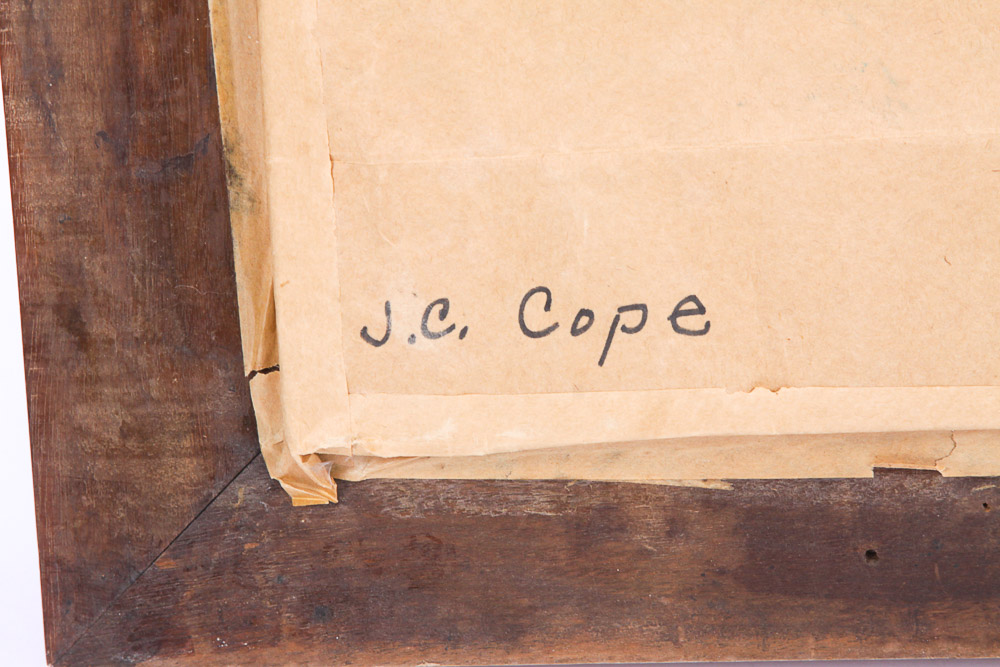 J.C. Cope